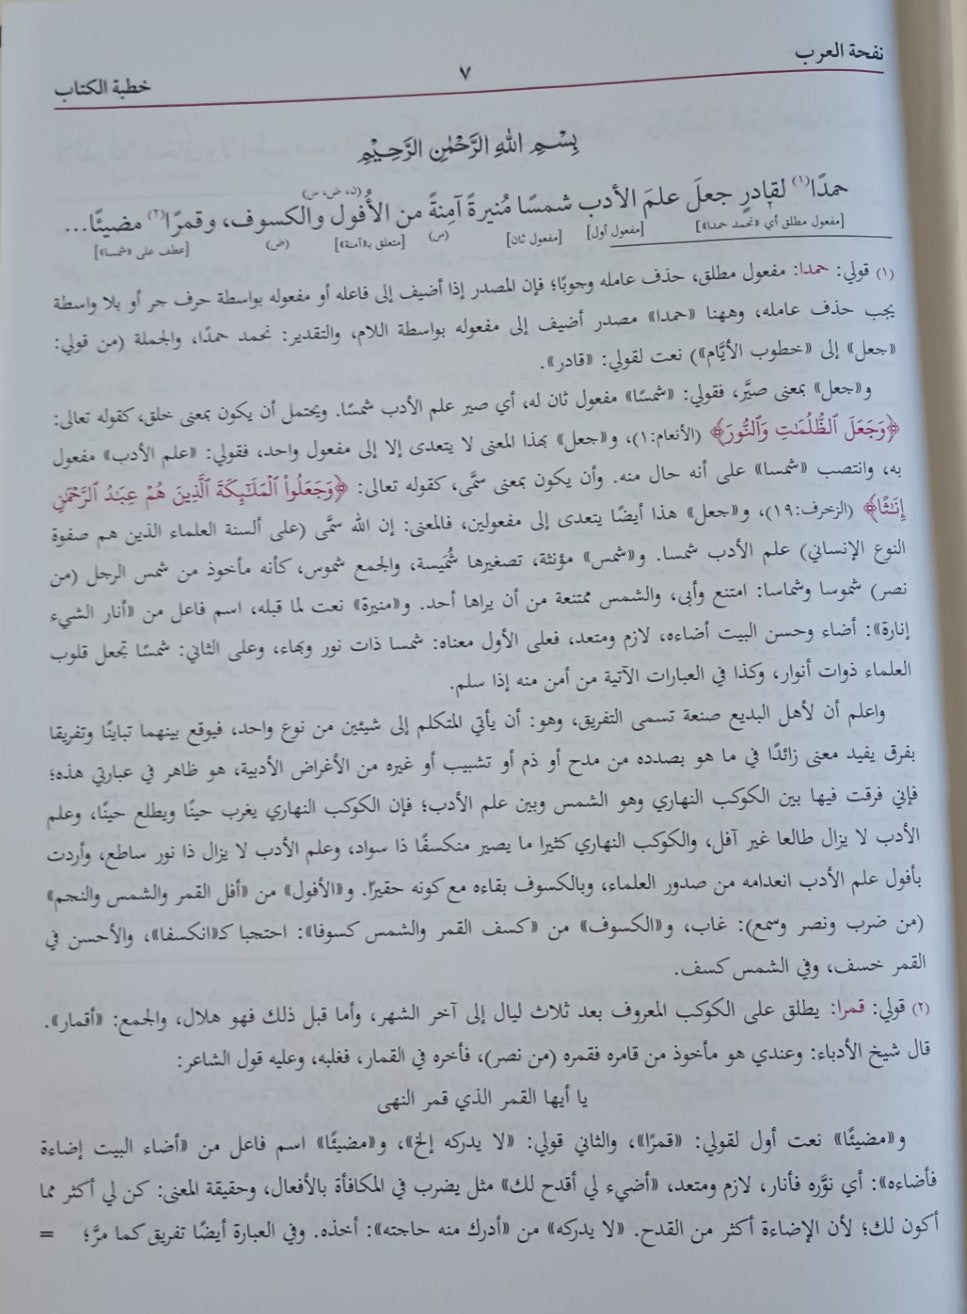 نفحة العرب
٧
خطبة الكتاب
بِسْمِ اللهِ الرَّحْمٰنِ الرَّحِيْمِ
حمدًا(١) لقادرٍ جعلَ علمَ الأدب شمسًا مُنيرةً آمِنةً من الأُفول والكسوف، وقمرًا(٢) مضيئًا...
(ن، ض، س)
[مفعول مطلق أي «نحمد حمدا»] [مفعول أول] [مفعول ثان] (س) [متعلق بـ«آمنة»] (ض) [عطف على «شمسا»]
(١) قولي: حمدا: مفعول مطلق، حذف عامله وجوبًا؛ فإن المصدر إذا أضيف إلى فاعله أو مفعوله بواسطة حرف جر أو بلا واسطة
يجب حذف عامله، وههنا «حمدا» مصدر أضيف إلى مفعوله بواسطة اللام، والتقدير: نحمد حمدًا، والجملة (من قولي:
«جعل» إلى «خطوب الأيَّام») نعت لقولي: «قادر».
و«جعل» بمعنى صيَّر، فقولي: «شمسًا» مفعول ثان له، أي صير علم الأدب شمسًا. ويحتمل أن يكون بمعنى خلق، كقوله تعالى:
﴿وَجَعَلَ ٱلظُّلُمَٰتِ وَٱلنُّورَ﴾ (الأنعام:١)، و«جعل» بهذا المعنى لا يتعدى إلا إلى مفعول واحد، فقولي: «علم الأدب» مفعول
به، وانتصب «شمسا» على أنه حال منه. وأن يكون بمعنى سمَّى، كقوله تعالى: ﴿وَجَعَلُواْ ٱلْمَلَٰٓئِكَةَ ٱلَّذِينَ هُمْ عِبَٰدُ ٱلرَّحْمَٰنِ
إِنَٰثًا﴾ (الزخرف:١٩)، و«جعل» هذا أيضًا يتعدى إلى مفعولين، فالمعنى: إن الله سمَّى (على ألسنة العلماء الذين هم صفوة
النوع الإنساني) علم الأدب شمسا. و«شمس» مؤنثة، تصغيرها شُمَيسة، والجمع شموس، كأنه مأخوذ من شمس الرجل (من
نصر) شموسا وشماسا: امتنع وأبى، والشمس ممتنعة من أن يراها أحد. و«منيرة» نعت لما قبله، اسم فاعل من «أنار الشيء
إنارة»: أضاء وحسن البيت أضاءه، لازم ومتعد، فعلى الأول معناه: شمسا ذات نور وبهاء، وعلى الثاني: شمسًا تجعل قلوب
العلماء ذوات أنوار، وكذا في العبارات الآتية من أمن منه إذا سلم.
واعلم أن لأهل البديع صنعة تسمى التفريق، وهو: أن يأتي المتكلم إلى شيئين من نوع واحد، فيوقع بينهما تباينًا وتفريقا
بفرق يفيد معنى زائدًا في ما هو بصدده من مدح أو ذم أو تشبيب أو غيره من الأغراض الأدبية، هو ظاهر في عبارتي هذه؛
فإني فرقت فيها بين الكوكب النهاري وهو الشمس وبين علم الأدب؛ فإن الكوكب النهاري يغرب حينًا ويطلع حينًا، وعلم
الأدب لا يزال طالعا غير آفل، والكوكب النهاري كثيرا ما يصير منكسفًا ذا سواد، وعلم الأدب لا يزال ذا نور ساطع، وأردت
بأفول علم الأدب انعدامه من صدور العلماء، وبالكسوف بقاءه مع كونه حقيرًا. و«الأفول» من «أفل القمر والشمس والنجم»
(من ضرب ونصر وسمع): غاب، و«الكسوف» من «كسف القمر والشمس كسوفا»: احتجبا كـ«انكسفا»، والأحسن في
القمر خسف، وفي الشمس كسف.
(٢) قولي: قمرا: يطلق على الكوكب المعروف بعد ثلاث ليال إلى آخر الشهر، وأما قبل ذلك فهو هلال، والجمع: «أقمار».
قال شيخ الأدباء: وعندي هو مأخوذ من قامره فقمره (من نصر)، فأخره في القمار، فغلبه، وعليه قول الشاعر:
يا أيها القمر الذي قمر النهى
و«مضيئًا» نعت أول لقولي: «قمرًا»، والثاني قولي: «لا يدركه إلخ»، و«مضيئًا» اسم فاعل من «أضاء البيت إضاءة
فأضاءه»: أي نوَّره فأنار، لازم ومتعد، «أضيء لي أقدح لك» مثل يضرب في المكافأة بالأفعال، وحقيقة المعنى: كن لي أكثر مما
أكون لك؛ لأن الإضاءة أكثر من القدح. «لا يدركه» من «أدرك منه حاجته»: أخذه. وفي العبارة أيضًا تفريق كما مرَّ؛ =